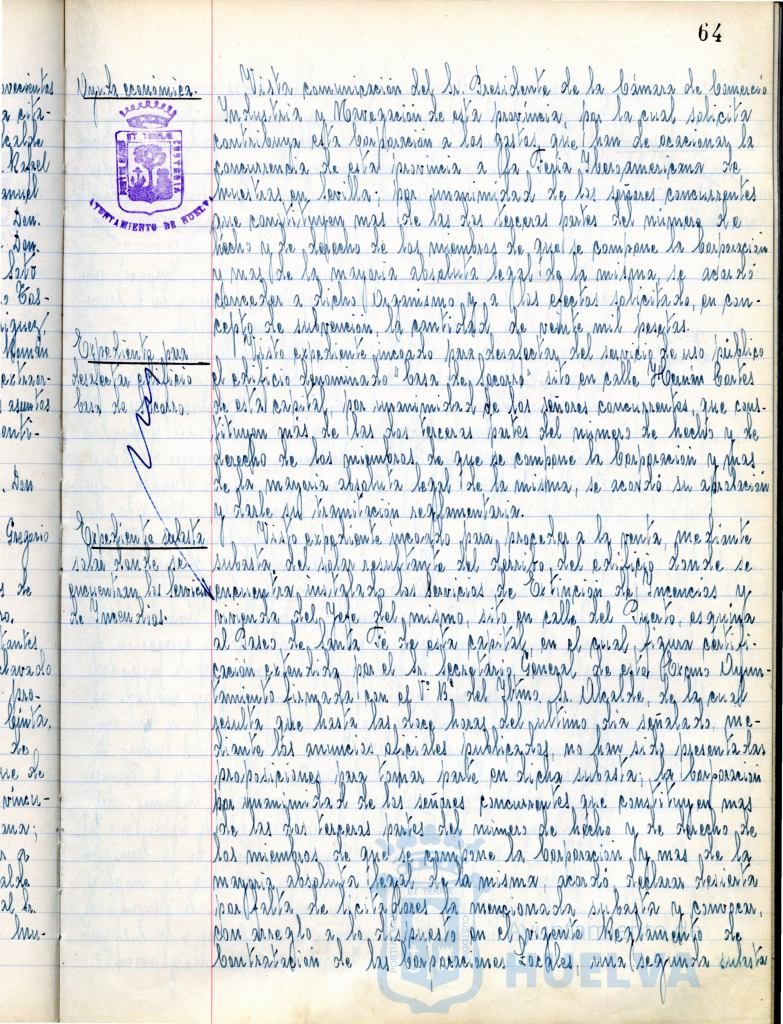 64
Ayuda económica.
PORTUS MARIS ET TERRAE CUSTODIA
AYUNTAMIENTO DE HUELVA
Vista comunicación del Sr. Presidente de la Cámara de Comercio
Industria y Navegación de esta provincia, por la cual solicita
contribuya esta Corporación a los gastos que han de ocasionar la
concurrencia de esta provincia a la Feria Iberoamericana de
muestras en Sevilla; por unanimidad de los señores concurrentes
que constituyen mas de las dos terceras partes del número de
hecho y de derecho de los miembros de que se compone la Corporación
y mas de la mayoria absoluta legal de la misma, se acordó
conceder a dicho Organismo y a los efectos solicitado, en con-
cepto de subvención, la cantidad de veinte mil pesetas.
Expediente para
desafectar edificio
Casa de Socorro.
Visto expediente incoado para desafectar del servicio de uso público
el edificio denominado "Casa de Socorro" sito en calle Hernán Cortes
de esta capital, por unanimidad de los señores concurrentes que cons-
tituyen más de las dos terceras partes del número de hecho y de
derecho de los miembros de que se compone la Corporación y mas
de la mayoria absoluta legal de la misma, se acordó su aprobación
y darle su tramitación reglamentaria.
Expediente subasta
solar donde se
encuentran los servicios
de Incendios.
Visto expediente incoado para proceder a la venta, mediante
subasta, del solar resultante del derribo del edificio donde se
encuentra instalado los servicios de Extinción de Incencios y
vivienda del Jefe del mismo, sito en calle del Puerto, esquina
al Paseo de Santa Fe de esta capital, en el cual figura certifi-
cación extendida por el Sr. Secretario General de este Excmo Ayun-
tamiento firmada con el Vº Bº del Iltmo. Sr. Alcalde, de la cual
resulta que hasta las doce horas del último dia señalado, me-
diante los anuncios oficiales publicados, no han sido presentadas
proposiciones para tomar parte en dicha subasta; la Corporación
por unanimidad de los señores concurrentes que constituyen mas
de las dos terceras partes del número de hecho y de derecho de
los miembros de que se compone la Corporación y mas de la
mayoria absoluta legal de la misma, acordó declarar desierta
por falta de licitadores la mencionada subasta y convocar,
con arreglo a lo dispuesto en el vigente Reglamento de
Contratación de las Corporaciones Locales, una segunda subasta
Ayuntamiento de
HUELVA